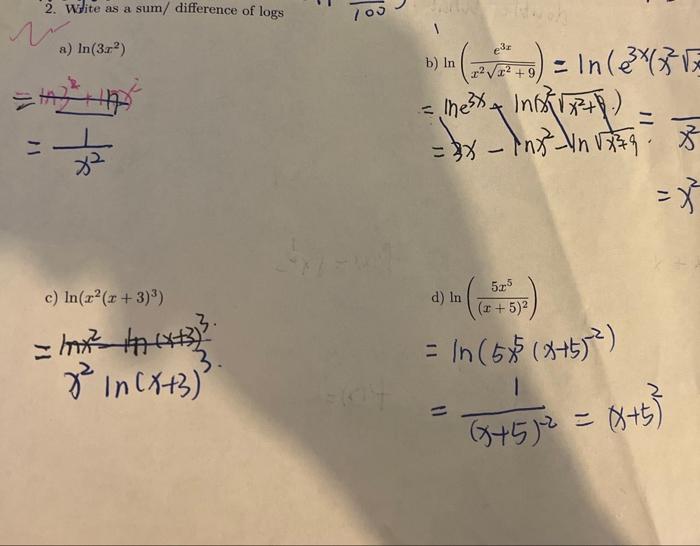 2. Write as a sum/ difference of logs
100
a) ln(3x²)
= 1/x²
b) ln (e^{3x} / (x²√(x² + 9))) = ln(e^{3x}(x²√x
= lne^{3x} - ln(x²√(x²+9)) =
= 3x - lnx² - ln√(x²+9).
x²
= x²
c) ln(x²(x + 3)³)
= lnx² - ln(x+3)³.
x² ln(x+3)³.
d) ln (5x⁵ / (x + 5)²)
= ln(5x⁵(x+5)⁻²)
= 1/(x+5)⁻² = (x+5)²